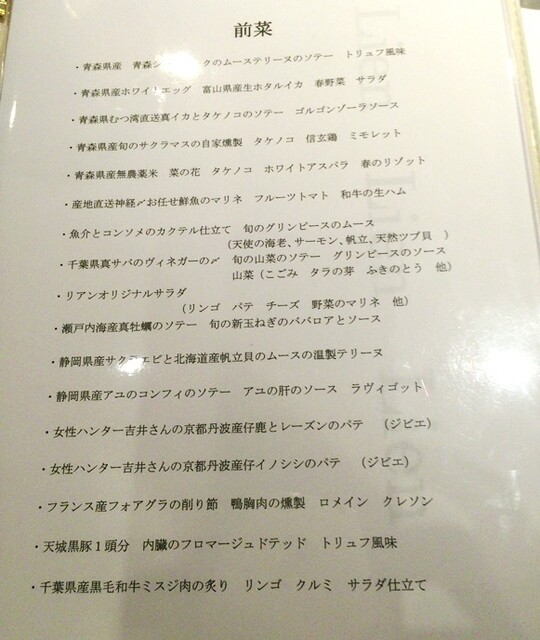 前菜
・青森県産　青森シ　　　クのムーステリーヌのソテー　トリュフ風味
・青森県産ホワイトエッグ　富山県産生ホタルイカ　春野菜　サラダ
・青森県むつ湾直送真イカとタケノコのソテー　ゴルゴンゾーラソース
・青森県産旬のサクラマスの自家燻製　タケノコ　信玄鶏　ミモレット
・青森県産無農薬米　菜の花　タケノコ　ホワイトアスパラ　春のリゾット
・産地直送神経〆お任せ鮮魚のマリネ　フルーツトマト　和牛の生ハム
・魚介とコンソメのカクテル仕立て　旬のグリンピースのムース
（天使の海老、サーモン、帆立、天然ツブ貝　）
・千葉県真サバのヴィネガーの〆　旬の山菜のソテー　グリンピースのソース
山菜（こごみ　タラの芽　ふきのとう　他）
・リアンオリジナルサラダ
（リンゴ　パテ　チーズ　野菜のマリネ　他）
・瀬戸内海産真牡蠣のソテー　旬の新玉ねぎのババロアとソース
・静岡県産サクラエビと北海道産帆立貝のムースの温製テリーヌ
・静岡県産アユのコンフィのソテー　アユの肝のソース　ラヴィゴット
・女性ハンター吉井さんの京都丹波産仔鹿とレーズンのパテ　（ジビエ）
・女性ハンター吉井さんの京都丹波産仔イノシシのパテ　（ジビエ）
・フランス産フォアグラの削り節　鴨胸肉の燻製　ロメイン　クレソン
・天城黒豚１頭分　内臓のフロマージュドテッド　トリュフ風味
・千葉県産黒毛和牛ミスジ肉の炙り　リンゴ　クルミ　サラダ仕立て